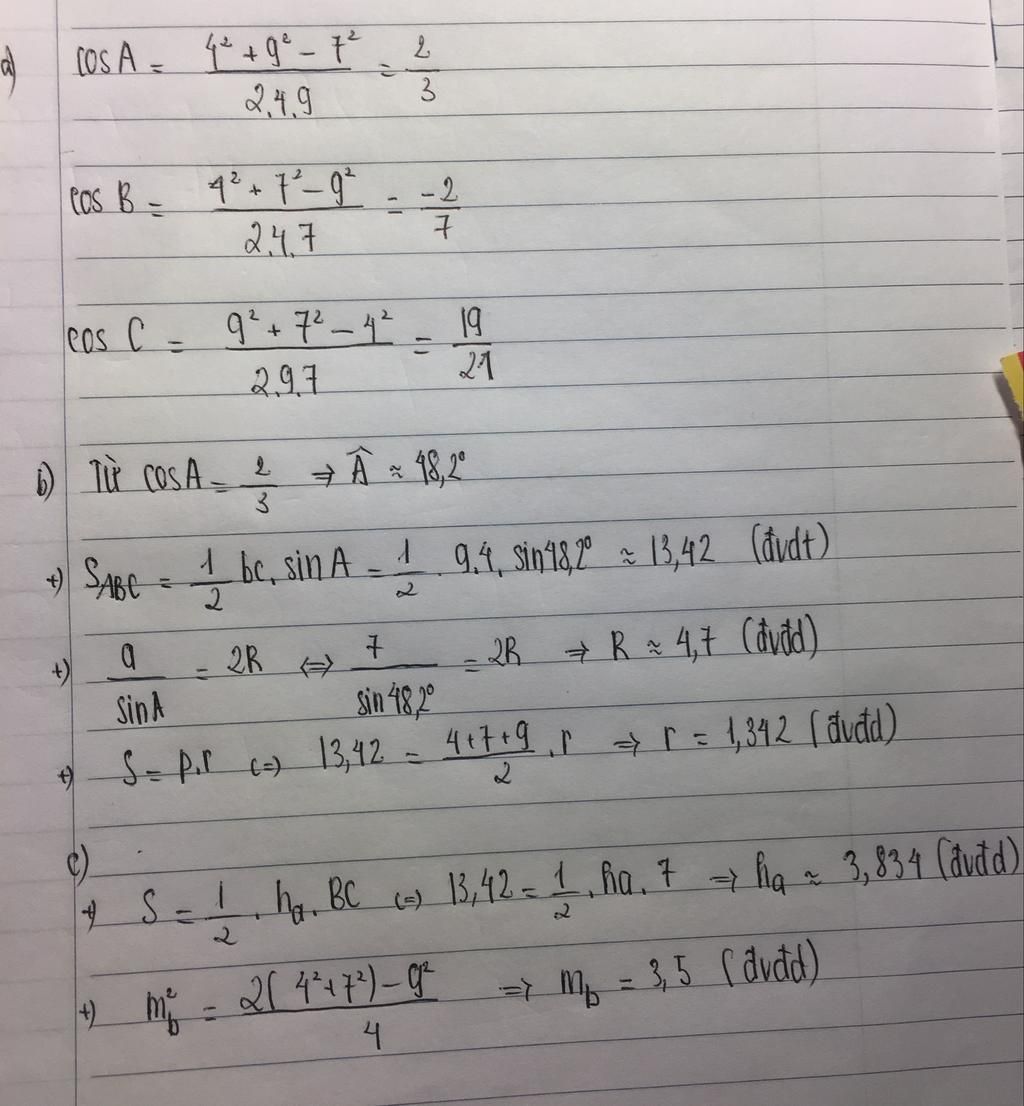 a) cosA = (4² + 9² – 7²)/(2.4.9) = 2/3
cos B = (4² + 7² – 9²)/(2.4.7) = –2/7
cos C = (9² + 7² – 4²)/(2.9.7) = 19/21
b) Từ cosA = 2/3 ⇒ Â ≈ 48,2°
+) S_ABC = 1/2 bc. sin A = 1/2 . 9.4. sin48,2° ≈ 13,42 (đvdt)
+) a/sinA = 2R ⇔ 7/sin48,2° = 2R ⇒ R ≈ 4,7 (đvđd)
+) S = p.r (=) 13,42 = (4+7+9)/2 . r ⇒ r = 1,342 (đvđd)
c)
+) S = 1/2 . hₐ. BC (=) 13,42 = 1/2 . ha. 7 ⇒ hₐ ≈ 3,834 (đvđd)
+) m_b² = (2(4²+7²) – 9²)/4 ⇒ m_b = 3,5 (đvđd)